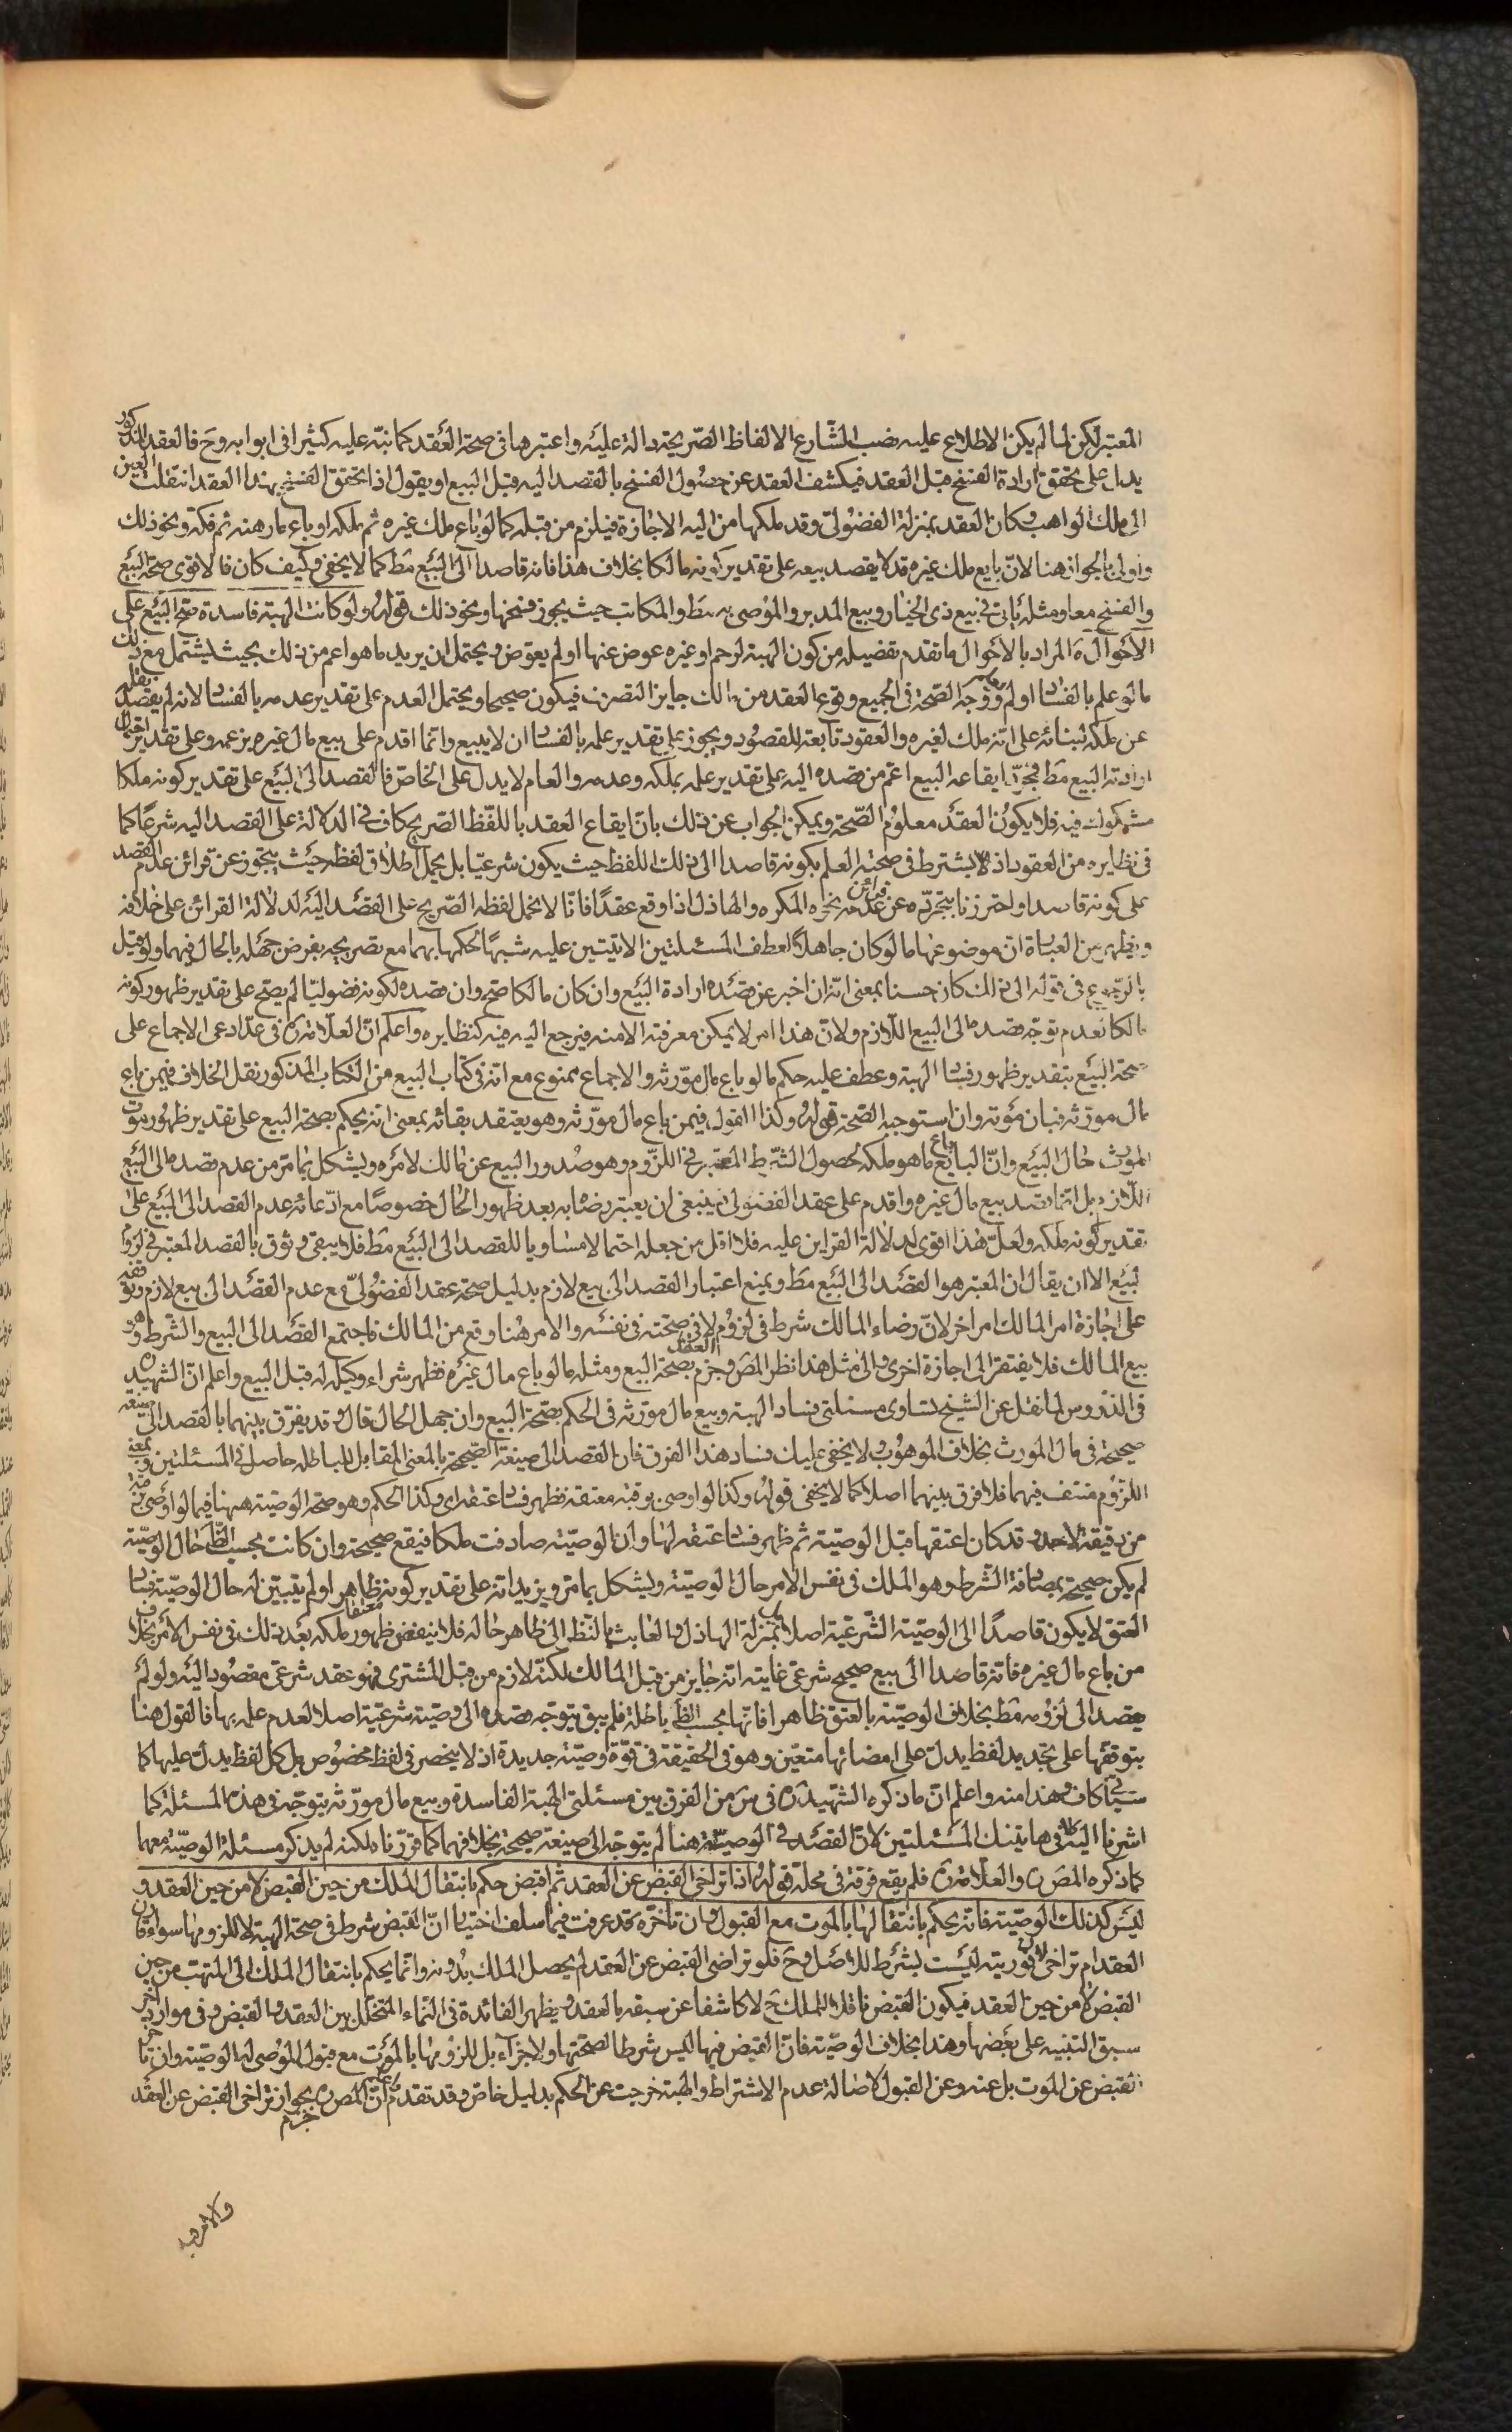 المعتبر لكن لما لم يكن الاطلاع عليه نصب الشارع الالفاظ الصريحة دالة عليه واعتبرها فى صحة العقد كما نبّه عليه كثيرا فى ابوابه وح فالعقد المذكور
يدل على تحقق ارادة الفسخ قبل العقد فيكشف العقد عن حصول الفسخ بالقصد اليه قبل البيع او يقول اذا تحقق الفسخ بهذا العقد انتقلت العين
الى ملك الواهب وكان العقد بمنزلة الفضولىّ وقد ملكها من اليه الاجازة فيلزم من قبله كما لو باع ملك غيره ثم ملكه او باع ما رهنه ثم فكه ونحو ذلك
واولى بالجواز هنا لانّ بايع ملك غيره قد لا يقصد بيعه على تقدير كونه مالكا بخلاف هذا فانه قاصد الى البيع مط كما لا يخفى وكيف كان فالاقوى صحة البيع
والفسخ معا ومثله يأتى فى بيع ذى الخيار وبيع المدبر والموصى به مط والمكاتب حيث يجوز فسخها ونحو ذلك قوله ولو كانت الهبة فاسدة صح البيع على
الاحوال المراد بالاحوال ما تقدم تفصيله من كون الهبة لرحم او غيره عوض عنها او لم يعوض ويحتمل ان يريد ما هو اعم من ذلك بحيث يشتمل مع ذلك
ما لو علم بالفساد او لم يعلم ووجه الصحة فى الجميع وقوع العقد من مالك جايز التصرف فيكون صحيحا ويحتمل العدم على تقدير عدمه بالفساد لانه لم يقصد نقله
عن ملكه لبنائه على انه ملك لغيره والعقود تابعة للقصود ويجوز على تقدير علمه بالفساد ان لا يبيع وانّما اقدم على بيع مال غيره بزعمه وعلى تقدير احتمال
ارادته البيع مط فمجرّد ايقاعه البيع اعم من قصده اليه على تقدير علمه بملكه وعدمه والعام لا يدل على الخاص فالقصد الى البيع على تقدير كونه ملكا
مشكوك فيه فلا يكون العقد معلوم الصحة ويمكن الجواب عن ذلك بان ايقاع العقد باللفظ الصريح كاف فى الدلالة على القصد اليه شرعًا كما
فى نظايره من العقود اذ لا يشترط فى صحته العلم بكونه قاصدا الى ذلك اللفظ حيث يكون شرعيّا بل يحمل اطلاق لفظه حيث يتجرد عن قرائن عدم القصد
على كونه قاصدا واحترزنا بتجرّده عن قرائن عدمه نحو المكره والهاذل اذا وقع عقدًا فانّا لا نحمل لفظه الصّريح على القصد اليه لدلالة القرائن على خلافه
ويظهر من العبارة ان موضوعها ما لو كان جاهلًا لعطف المسئلتين الاتيتين عليه شبهًا لحكمها بهما مع تصريحه بفرض جهله بالحال فيهما ولو قيل
بالرجوع فى قوله الى ذلك كان حسنا بمعنى انه ان اخبر عن قصده ارادة البيع وان كان مالكا صح وان قصده لكونه فضوليّا لم يصح على تقدير ظهور كونه
مالكا لعدم توجّه قصده الى البيع اللازم ولان هذا امر لا يمكن معرفته الا منه فيرجع اليه فيه كنظايره واعلم انّ العلّامة ره فى عدّ ادعى الاجماع على
صحة البيع بتقدير ظهور فساد الهبة وعطف عليه حكم ما لو باع مال مورّثه والاجماع ممنوع مع انه فى كتاب البيع من الكتاب المذكور نقل الخلاف فيمن باع
مال مورّثه فبان موته وان استوجب الصحة قوله وكذا القول فيمن باع مال مورّثه وهو يعتقد بقائه بمعنى انه يحكم بصحة البيع على تقدير ظهور موت
المورث حال البيع وانّ البايع باع ما هو ملكه لحصول الشرط المعتبر فى اللزوم وهو صدور البيع عن مالك لامره ويشكل بما مرّ من عدم قصده الى البيع
اللازم بل انما قصد بيع مال غيره واقدم على عقد الفضولى فينبغى ان يعتبر رضاه به بعد ظهور الحال خصوصًا مع ادّعائه عدم القصد الى البيع على
تقدير كونه ملكه ولعلّ هذا اقوى لدلالة القراين عليه فلا اقل من جعله احتمالا مساويا للقصد الى البيع مط فلا يبقى وثوق بالقصد المعتبر فى لزوم
البيع الا ان يقال ان المعتبر هو القصد الى البيع مط ويمنع اعتبار القصد الى بيع لازم بدليل صحة عقد الفضولىّ مع عدم القصد الى بيع لازم وتوقفه
على اجازة امر المالك امر اخر لانّ رضاء المالك شرط فى لزوم العقد لا فى صحته فى نفسه والامر هنا وقع من المالك فاجتمع القصد الى البيع والشرط وهو
بيع المالك فلا يفتقر الى اجازة اخرى والى مثل هذا نظر المصَ وجزم بصحة البيع ومثله ما لو باع مال غيره فظهر شراء وكيله له قبل البيع واعلم انّ الشهيد ره
فى الدّروس لما نقل عن الشيخ تساوى مسئلتى فساد الهبة وبيع مال مورّثه فى الحكم بصحّة البيع وان جهل الحال قال وقد يفرّق بينهما بالقصد الى صيغة
صحيحة فى مال المورث بخلاف الموهوب ولا يخفى عليك فساد هذا الفرق فان القصد الى صيغة الصحيحة بالمعنى المقابل للباطلة حاصل فى المسئلتين وبمعنى
اللزوم منتف فيهما فلا فرق بينهما اصلا كما لا يخفى قوله وكذا لو اوصى برقبة معتقة فظهر فساد عتقه اى وكذا الحكم وهو صحة الوصيّة ههنا فيما لو اوصى برقبة
من رقيقة لاحد وقد كان اعتقها قبل الوصيّة ثم ظهر فساد عتقه لها وان الوصيّة صادفت ملكا فيقع صحيحة وان كانت بحسب الظّاهر حال الوصيّة
لم يكن صحيحة بمصادفة الشرط وهو الملك فى نفس الامر حال الوصيّة ويشكل بما مرّ ويزيد انه على تقدير كونه ظاهرا ولم يتبيّن له حال الوصيّة فساد
العتق لا يكون قاصدًا الى الوصيّة الشّرعيّة اصلا بل بمنزلة الهاذل والعابث بالنّظر الى ظاهر حاله فلا ينفعه ظهور ملكه بعد ذلك فى نفس الامر بخلاف
من باع مال غيره فانه قاصد الى بيع صحيح شرعىّ غايته انه جايز من قبل المالك لكنّه لازم من قبل المشترى فهو عقد شرعىّ مقصود اليه ولو لم
يقصد الى لزومه مط بخلاف الوصيّة بالعتق ظاهرا فانّها بحسب الظّ باطلة فلم يبق يتوجّه قصده الى وصيّة شرعيّة اصلا لعدم علمه بها فالقول هنا
بتوقفها على تجديد لفظ يدلّ على امضائها متعيّن وهو فى الحقيقة فى قوّة وصيّة جديدة اذ لا ينحصر فى لفظ مخصوص بل كل لفظ يدلّ عليها كما
سيأتى كاف وهذا منه واعلم انّ ما ذكره الشّهيد ره فى س من الفرق بين مسئلتى الهبة الفاسدة وبيع مال مورّثه يتوجّه فى هذه المسئلة كما
اشرنا اليه لا فى هاتينك المسئلتين لانّ القصد فى الوصيّة هنا لم يتوجّه الى صيغة صحيحة بخلافهما كما قرّرناه لكنه لم يذكر مسئلة الوصيّة معهما
كما ذكره المصَ ره والعلّامة ره فلم يقع فرقه فى محلّه قوله اذا تراخى القبض عن العقد ثم اقبض حكم بانتقال الملك من حين القبض لا من حين العقد و
ليس كذلك الوصيّة فانه يحكم بانتقالها بالموت مع القبول وان تأخّر ه قد عرفت فيما سلف اختيار انّ القبض شرط فى صحة الهبة لا للزومها سواء قارن
العقد ام تراخى لان فوريته ليست بشرط للاصل وح فلو تراضى القبض عن العقد لم يحصل الملك بدونه وانّما يحكم بانتقال الملك الى المتهب من حين
القبض لا من حين العقد فيكون القبض ناقلا للملك ح لا كاشفا عن سبقه بالعقد ويظهر الفائدة فى النّماء المتخلّل بين العقد والقبض وفى موارد اخر
سبق التنبيه على بعضها وهذا بخلاف الوصيّة فانّ القبض فيها ليس شرطا لصحّتها ولا جزاء بل للزومها بالموت مع قبول الموصى له الوصيّة وان تأخر
القبض عن الموت بل عنه وعن القبول لاصالة عدم الاشتراط والهبة خرجت عن الحكم بدليل خاصّ وقد تقدّم انّ المصَ ره جزم بجواز تراخى القبض عن العقد